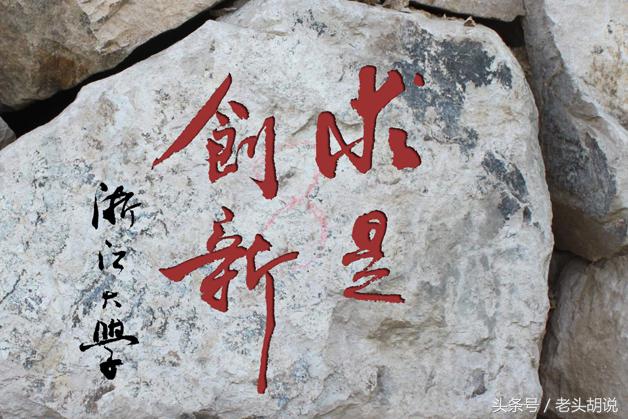 求是
創新
浙江大學
头条号 / 老头胡说